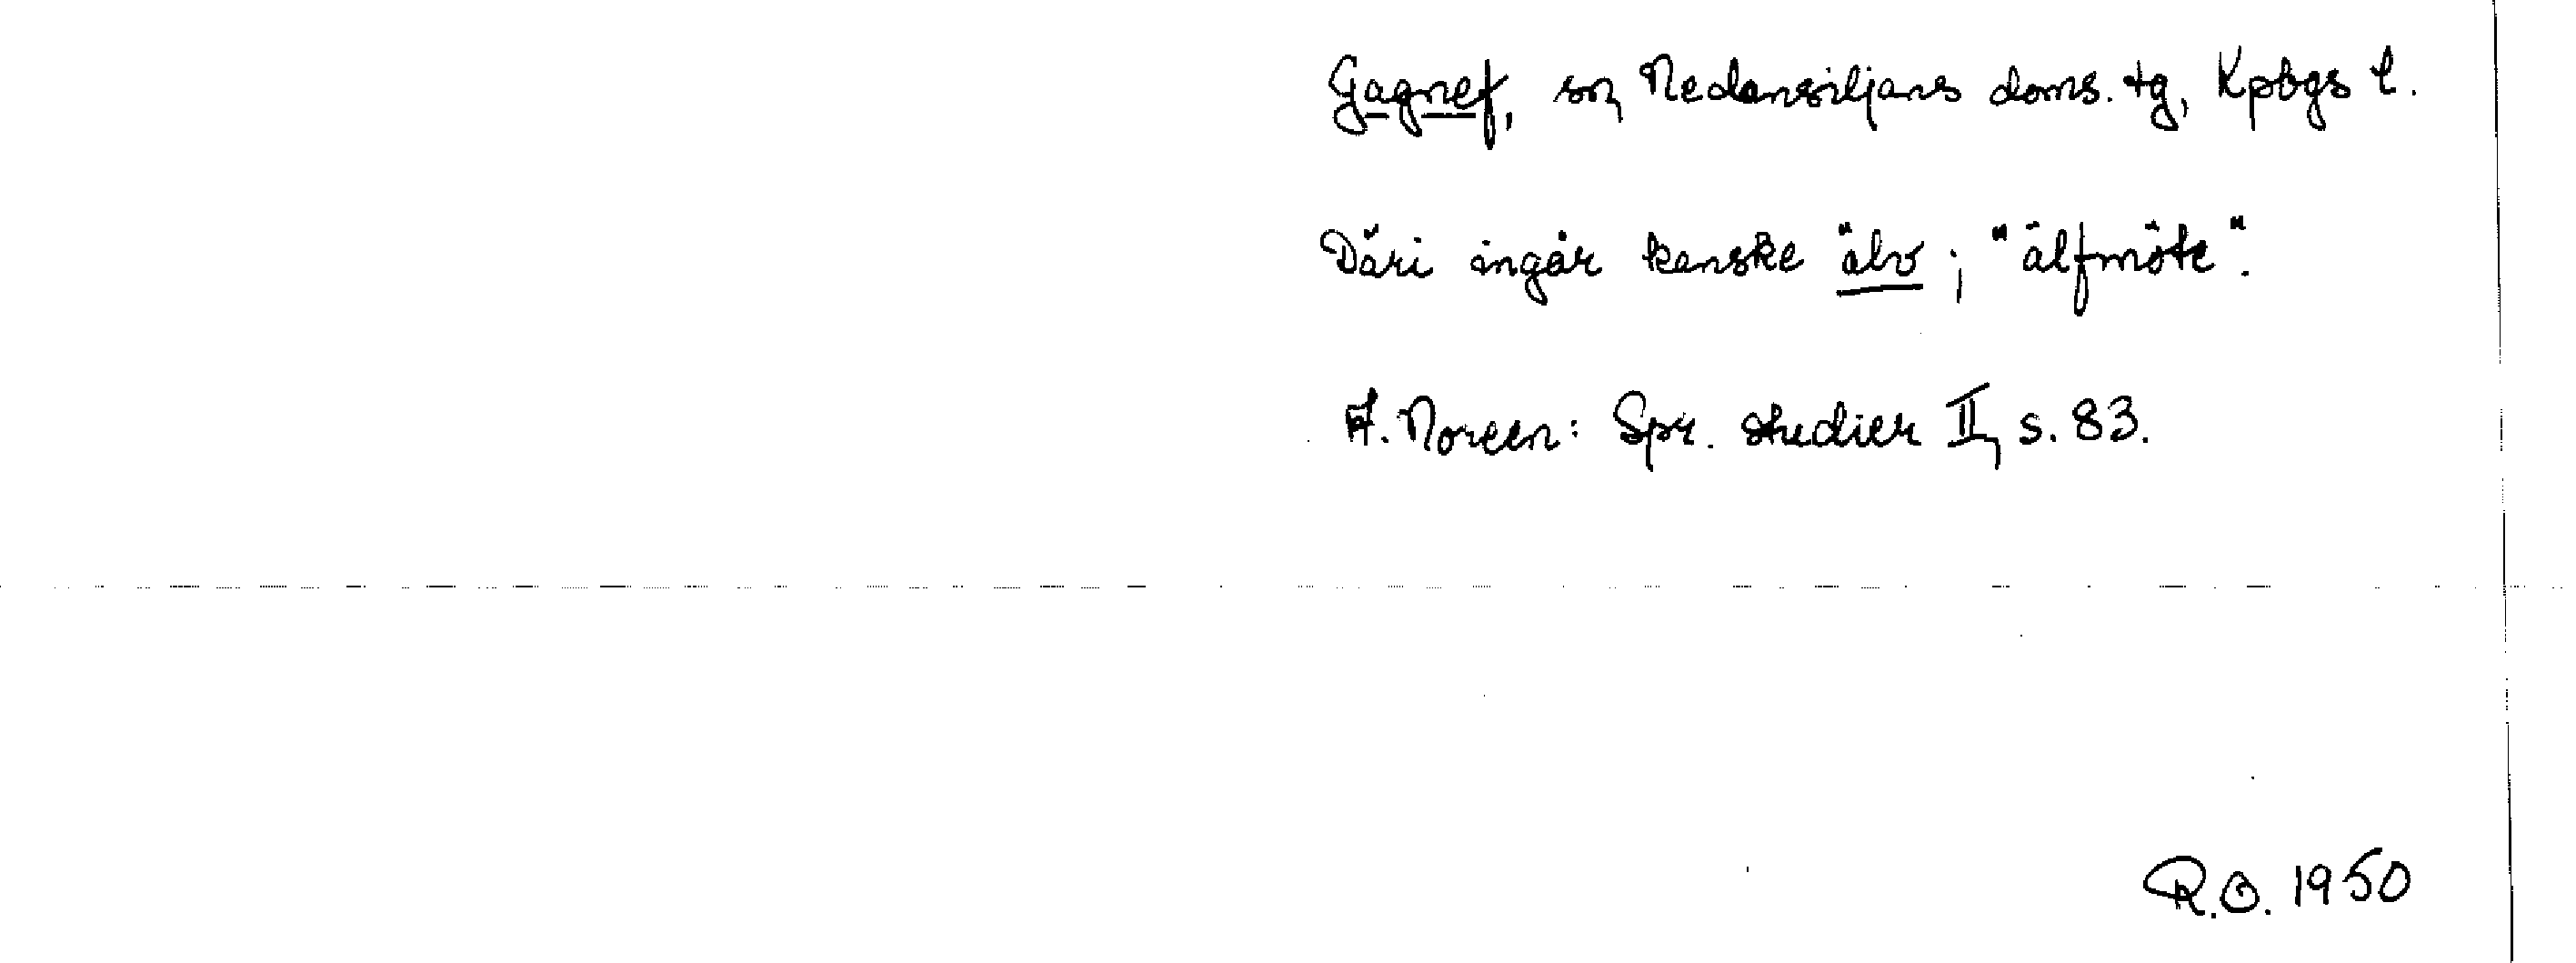 Gagnef, sn, Nedansiljans doms. tg, Kpbgs l.
Däri ingår kanske älv; "älfmöte".
A. Noreen: Spr. studier II, s. 83.
R.O. 1950